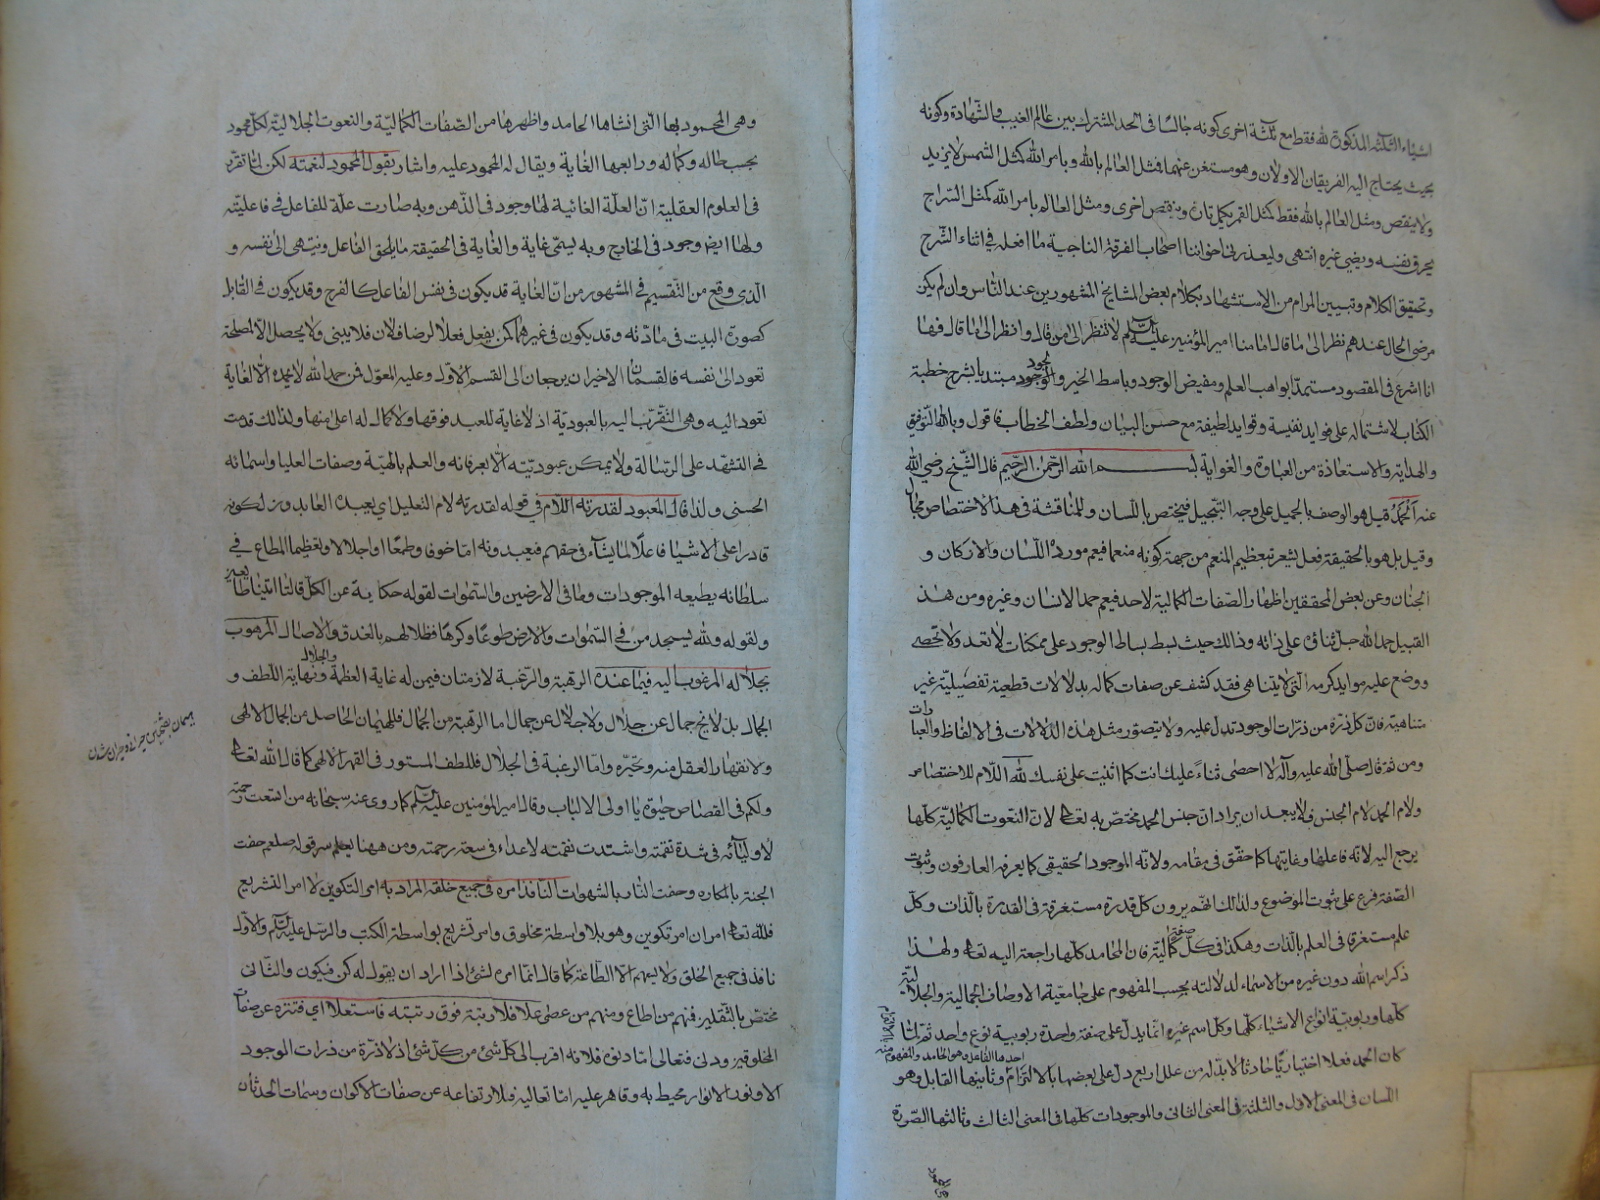 اشياء الثلثة المذكورة لله فقط مع ثلثة اخرى كونه جالسا فى الحد المشترك بين عالم الغيب والشهادة وكونه
بحيث يحتاج اليه الفريقان الاولان وهو مستغن عنهما فمثل العالم بالله وبامر الله كمثل الشمس لا يزيد
ولا ينقص ومثل العالم بالله فقط كمثل القمر يكمل تارة وينقص اخرى ومثل العالم بامر الله كمثل السراج
يحرق نفسه ويضيئ غيره انتهى وليعذرنى اخواننا اصحاب الفرقة الناجية ما افعله فى اثناء الشرح
وتحقيق الكلام وتبيين المرام من الاستشهاد بكلام بعض المشايخ المشهورين عند الناس وان لم يكن
مرضى الحال عندهم نظرا الى ما قال امامنا امير المؤمنين عليه السلم لا تنظر الى من قال وانظر الى ما قال فها
انا اشرع فى المقصود مستمدا بواهب العلم ومفيض الوجود وباسط الخير والجود مبتديا بشرح خطبة
الكتاب لاشتماله على فوايد نفيسة وقوايد لطيفة مع حسن البيان ولطف الخطاب فاقول وبالله التوفيق
والهداية والاستعاذة من الغباوة والغواية بسم الله الرحمن الرحيم قال الشيخ رضى الله
عنه الحمد قيل هو الوصف بالجميل على وجه التبجيل فيختص باللسان وللمناقشة فى هذا الاختصاص مجال
وقيل بل هو بالحقيقة فعل يشعر بتعظيم المنعم من جهة كونه منعما فيعم مورده اللسان والاركان و
الجنان وعن بعض المحققين اظهار الصفات الكمالية لاحد فيعم حمد الانسان وغيره ومن هذ
القبيل حمد الله جل ثناؤه على ذاته وذالك حيث بسط بساط الوجود على ممكنات لا تعد ولا تحصى
ووضع عليه موايد كرمه التى لا يتناهى فقد كشف عن صفات كماله بدلالات قطعية تفصيلية غير
متناهية فان كل ذرة من ذرات الوجود تدل عليه ولا يتصور مثل هذه الدلالات فى الالفاظ والعبارات
ومن ثم قال صلى الله عليه وآله لا احصى ثناء عليك انت كما اثنيت على نفسك لله اللام للاختصاص
ولام الحمد لام الجنس فلا يبعد ان يراد ان جنس الحمد مختص به تعالى لان النعوت الكمالية كلها
يرجع اليه لانه فاعلها وغايتها كما حقق فى مقامه ولانه الموجود الحقيقى كما يعرفه العارفون وثبوت
الصفة فرع على ثبوت الموضوع ولذالك انهم يرون كل قدرة مستغرقة فى القدرة بالذات وكل
علم مستغرق فى العلم بالذات وهكذا فى كل صفة كمالية فان المحامد كلها راجعة اليه تعالى ولهذا
ذكر اسم الله دون غيره من الاسماء لدلالته بحسب المفهوم على جامعية الاوصاف الجمالية والجلالية
كلها وربوبية انواع الاشياء كلها وكل اسم غيره انما يدل على صفة واحدة ربوبية نوع واحد ثم لما
كان الحمد فعلا اختياريا حادثا لا بد له من علل اربع دل على بعضها بالالتزام احدها الفاعل وهو الحامد والمفهوم منه وثانيها القابل وهو
اللسان فى المعنى الاول والثلثة فى المعنى الثانى والموجودات كلها فى المعنى الثالث وثالثها الصورة
وهى المحمود بها التى انشاها الحامد واظهرها من الصفات الكمالية والنعوت الجلالية لكل محمود
بحسب حاله وكماله ورابعها الغاية ويقال له المحمود عليه واشار بقوله المحمود لنعمته لكن لما تقرر
فى العلوم العقلية ان العلة الغائية لها وجود فى الذهن وبه صارت علة للفاعل فى فاعليته
ولها ايض وجود فى الخارج وبه يسمى غاية والغاية فى الحقيقة ما يلحق الفاعل وينتهى الى نفسه و
الذى وقع من التقسيم فى المشهور من ان الغاية قد يكون فى نفس الفاعل كالفرح وقد يكون فى القابل
كصورة البيت فى مادته وقد يكون فى غيرهما كمن يفعل فعلا لرضا فلان فلا يبنى ولا يحصل الا لمصلحة
تعود الى نفسه فالقسمان الاخيران يرجعان الى القسم الاول وعليه المعول فمن حمد الله لا يحمده الا لغاية
تعود اليه وهى التقرب اليه بالعبودية اذ لا غاية للعبد فوقها ولا كمال له اعلى منها ولذالك قدمت
فى التشهد على الرسالة ولا يمكن عبوديته الا بعرفانه والعلم بالهية وصفات العليا واسمائه
الحسنى ولذا قال المعبود لقدرته اللام فى قوله لقدرته لام التعليل اى يعبده العابدون لكونه
قادرا على الاشياء فاعلا لما يشاء فى حقهم فيعبدونه اما خوفا وطمعا او اجلالا وتعظيما المطاع فى
سلطانه يطيعه الموجودات وما فى الارضين والسموات لقوله حكاية عن الكل قالتا اتينا طائعين
ولقوله ولله يسجد من فى السموات والارض طوعا وكرها وظلالهم بالغدو والاصال المرهوب
بجلاله المرغوب اليه فيما عنده الرهبة والرغبة لازمتان فيمن له غاية العظمة والجلال ونهاية اللطف و
الجمال بل لا يخ جمال عن جلال ولا جلال عن جمال اما الرهبة من الجمال فللهيمان الحاصل من الجمال الالهى
ولانقهار العقل منه وتحيره واما الرغبة فى الجلال فللطف المستور فى القهر الالهى كما قال الله تعالى
ولكم فى القصاص حيوة يا اولى الالباب وقال امير المؤمنين عليه السلم كما روى عنه سبحانه من اتسعت رحمته
لاوليائه فى شدة نقمته واشتدت نقمته لاعدائه فى سعة رحمته ومن ههنا يعلم سر قوله صلعم حفت
الجنة بالمكاره وحفت النار بالشهوات النافذ امره فى جميع خلقه المراد به امر التكوين لا امر التشريع
فلله تعالى امران امر تكوين وهو بلا واسطة مخلوق وامر تشريع بواسطة الكتب والرسل عليهم السلم والاول
نافذ فى جميع الخلق ولا يسعهم الا الطاعة كما قال انما امره لشئ اذا اراد ان يقول له كن فيكون والثانى
مختص بالثقلين فمنهم من اطاع ومنهم من عصى علا فلا رتبة فوق رتبته فاستعلا اى فتنزه عن صفات
المخلوقين ودنى فتعالى اما دنوه فلانه اقرب الى كل شئ من كل شئ اذ لا ذرة من ذرات الموجود
الا ونور الانوار محيط به وقاهر عليه اما تعاليه فلارتفاعه عن صفات الاكوان وسمات الحدثان